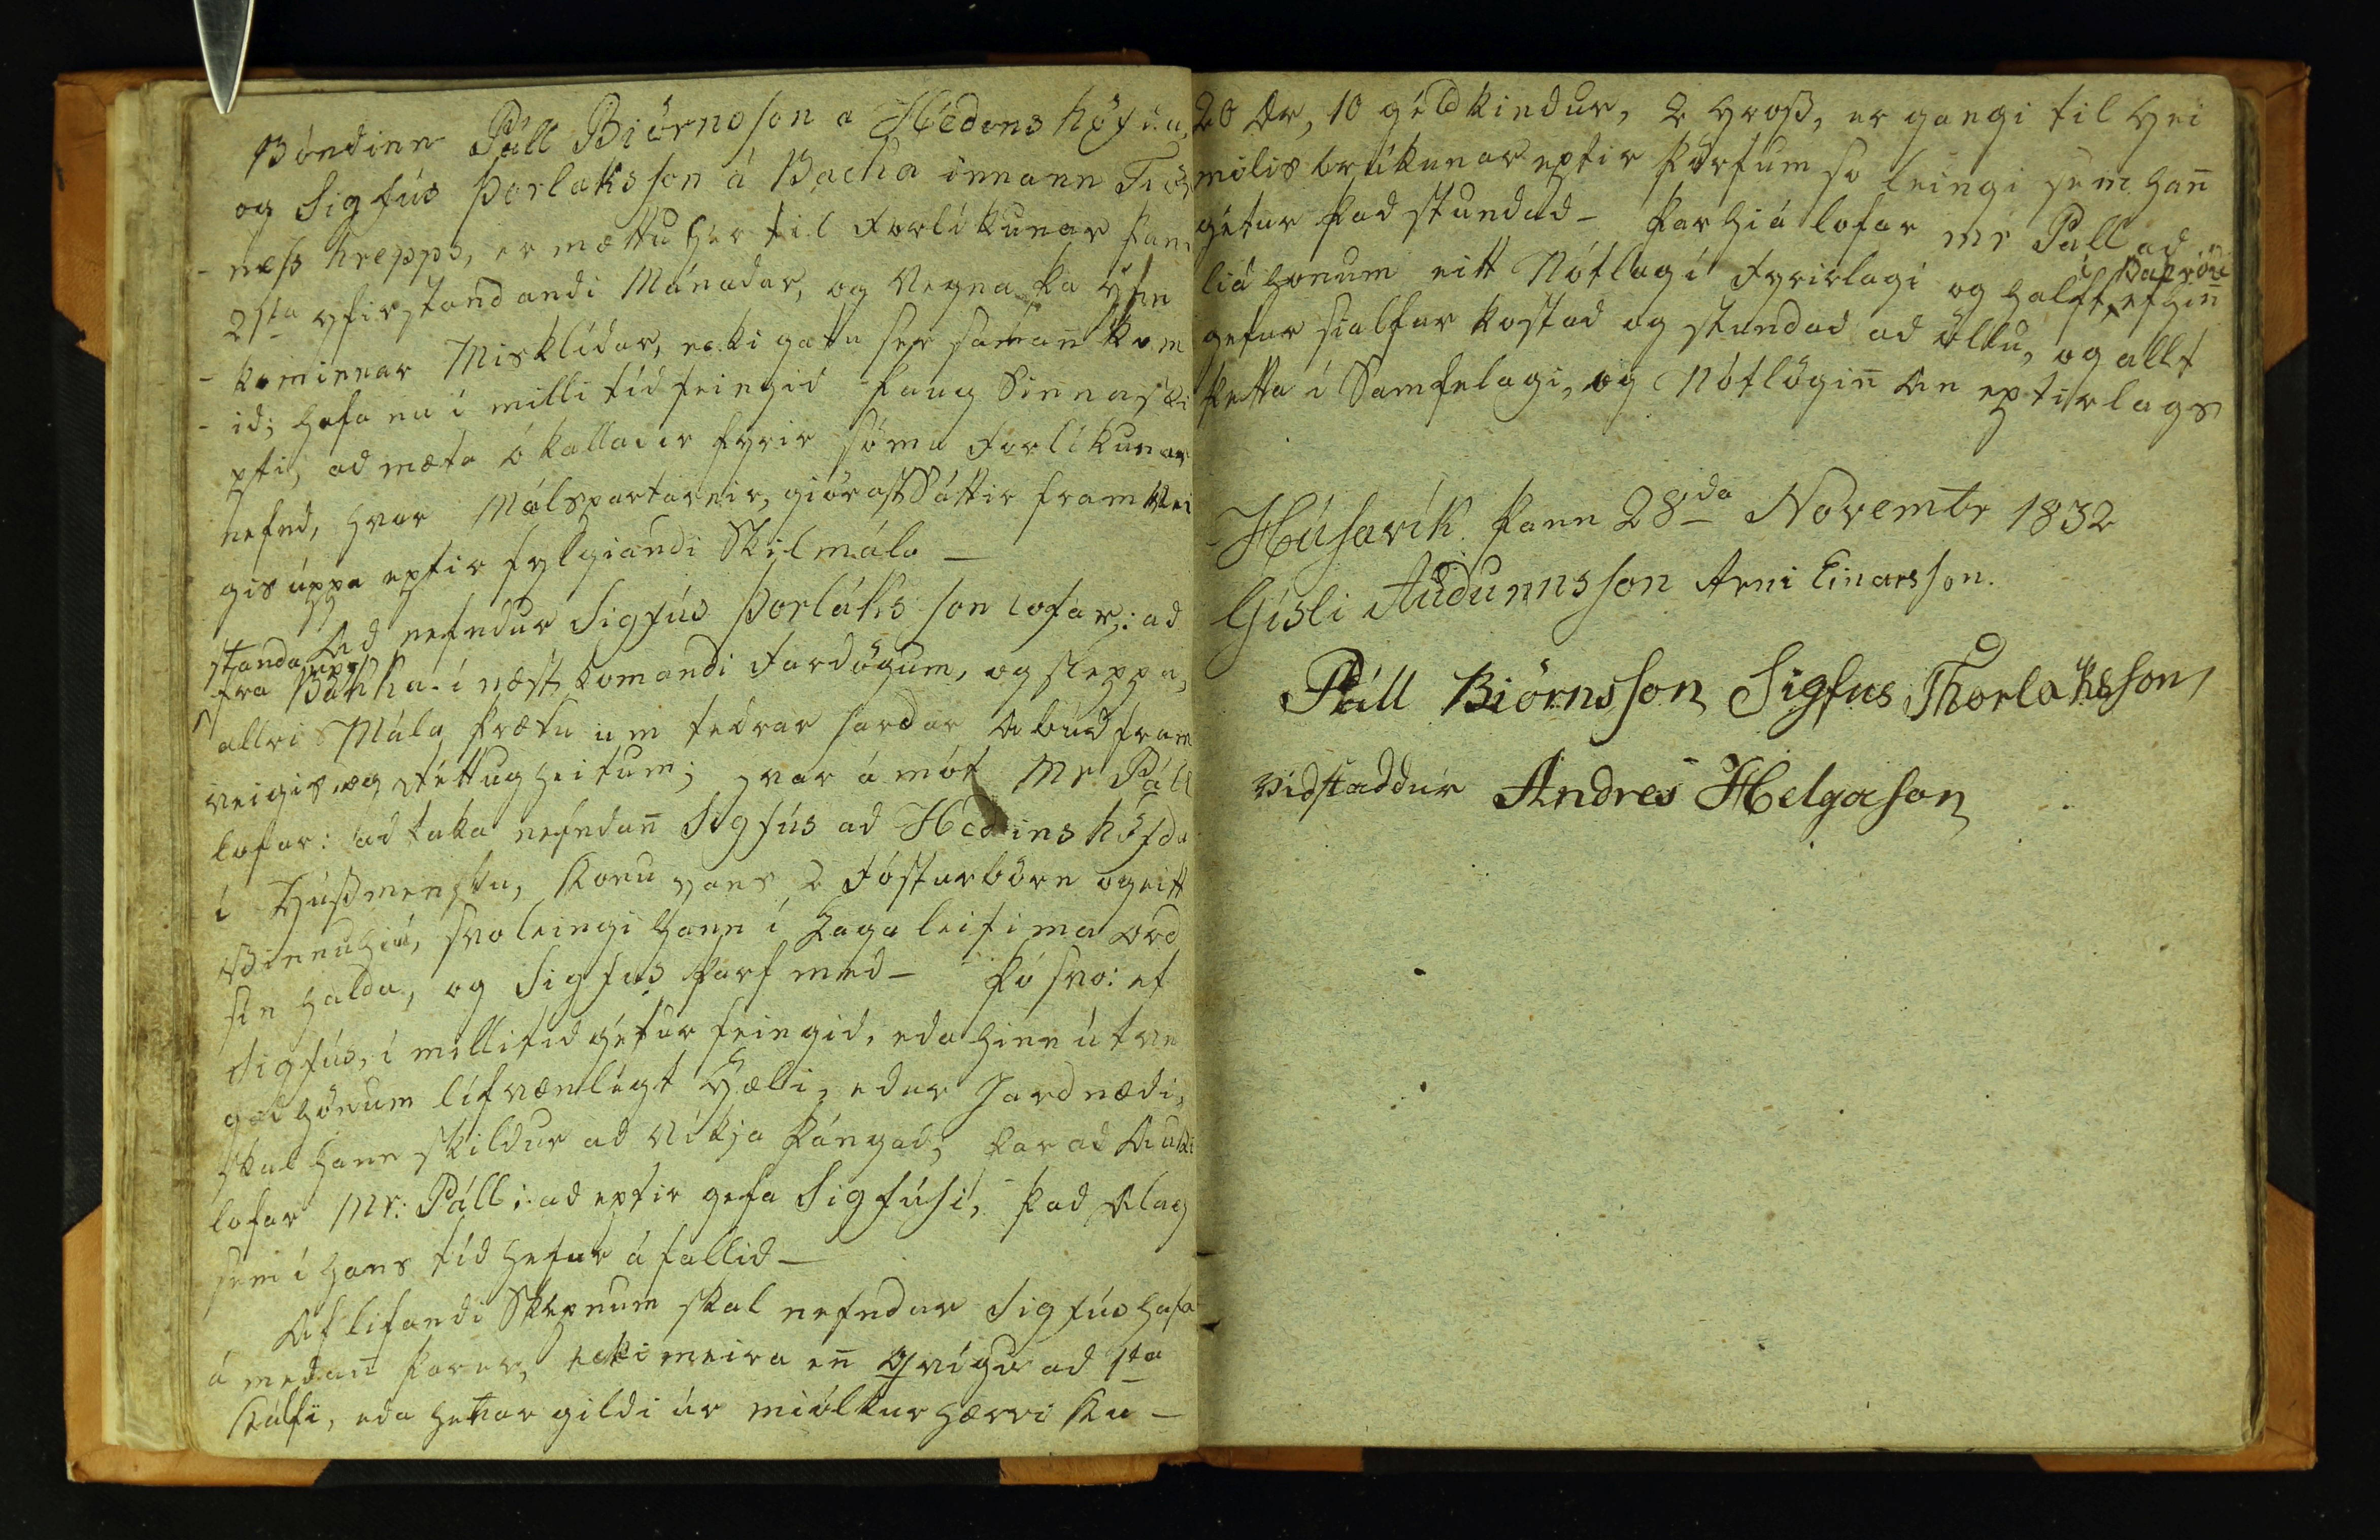 Bóndinn Páll Biörnsson a Hédenshöfda,
og Sigfús Þorlaksson á Backa innann Tiör
- ness hrepps, er mættu hér til Forlíkunar þann
21ta yfirstandandi Mánadar, og vegna þa
- kominnar Misklídar, ecki gátu sér saman kom
- id; hafa nu i millitid feingid þaug Sinnaski
pti, ad mæta ókalladir fyrir sömu Forlíkunar
nefnd, hvar Málspartarnir, giörast Sáttir framvei
gis úppa eptir fylgiandi Skilmála —
Ad nefndur Sigfús Þorláksson lofar: ad
standa upp
frá Bakka í næstkomandi Fardögum, og sleppa,
allri Mála þrætu um tedrar Jardar Abúd fram
veigis, og réttugheitum; hvar á mót Mr Páll
lofar: ad taka nefndan Sigfús ad Hédinshöfda
i Húsmensku, Konu hans 2 Fósturbörn og eitt
Vinnuhiú, svo leingi hann í Haga leifi má ord
sin halda, og Sigfús þarf med — þó svo: ef
Sigfús, i millitid gétur feingid, eda hinn útve
gad hönum lífvænlégt Hæli, edur Jardnædi,
skal hann skildur ad víkja þángad; þar ad auki
lofar Mr: Páll: ad eptir gefa Sigfúsi, þad Alag
sem i hans tíd hefur áfallid —
Af lifandi Skepnum skal nefndur Sigfús hafa
á medan þarer, ecki meira en qvígu ad 1ta
Kálfi, eda hennar gildi úr miólkurhærri Ku —
20 Ær, 10 géldkindur, 2 hross, er gangi til Hei
milis brúkunar eptir þörfum so leingi sem han
gétur þad stundad — þarhiá lofar mr Páll ad
liá honum eitt Nótlag í Fyrirlagi og halft
ef hin
gefur sialfur kostad og stundad ad öllu, og allt
þetta i Samfelagi, og Nótlögin án eptirlags
Húsavík þann 28da Novembr 1832
Gísli Audunnsson Arni Einarsson.
Páll Biörnsson Sigfus Thorlaksson
vidstaddur Andres Helgason